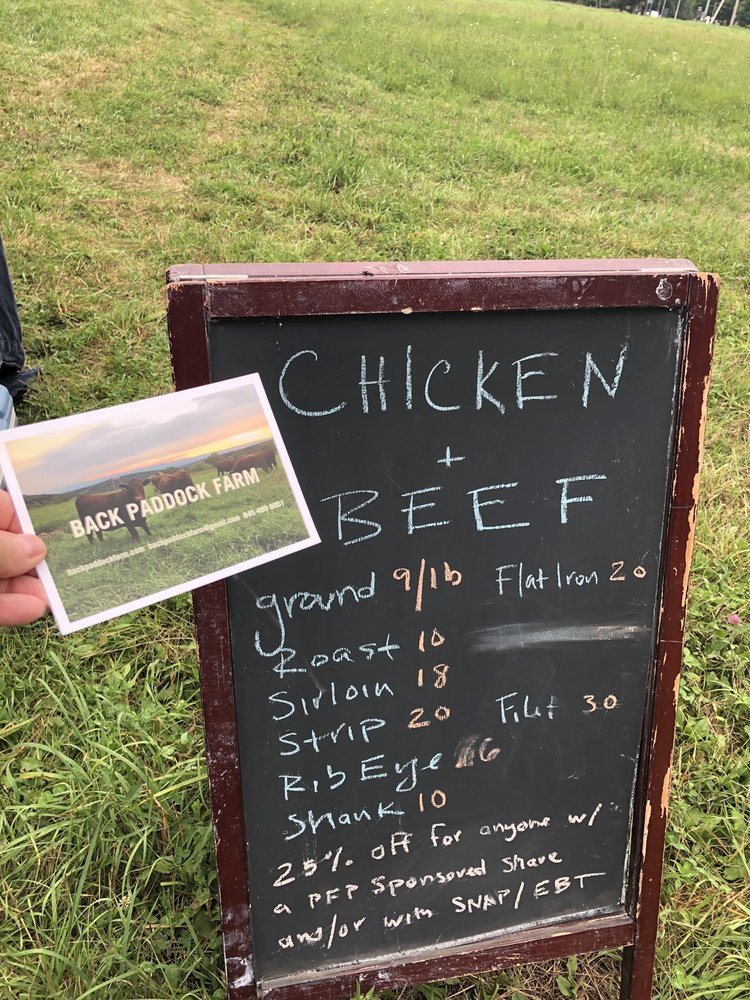 CHICKEN
+
BEEF
ground 9/lb Flat Iron 20
Roast 10
Sirloin 18
Strip 20 Filet 30
Rib Eye
Shank 10
25% off for anyone w/
a PFP Sponsored Share
and/or with SNAP/EBT
BACK PADDOCK FARM